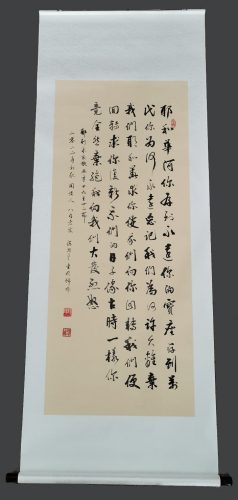 耶和華阿你存到永遠你的寶座存到萬
代你为何永遠忘记我們為何許久離棄
我們耶和華求你使我們向你回轉我們便
回轉求你復新我們的日子像古時一樣你
竟全然棄絕我們向我們大發烈怒
耶利米哀歌五章十九至